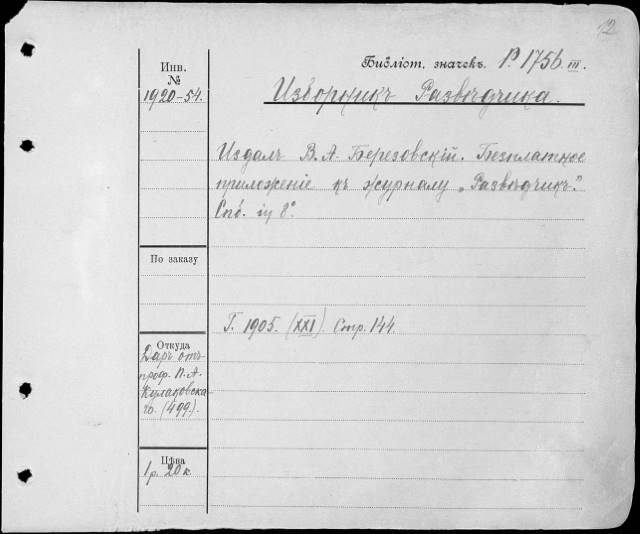 12
Библіот. значекъ. P. 1756 III.
Инв.
№
1920-54.
Изборникъ Развѣдчика.
Издалъ В. А. Березовскій. Безплатное
приложеніе къ журналу „Развѣдчикъ."
Спб. in 8°.
По заказу
Г. 1905. (XXI). Стр. 144.
Откуда
Даръ отъ
проф. П. А.
Кулаковска-
го. (499).
Цѣна
1 р. 20 к